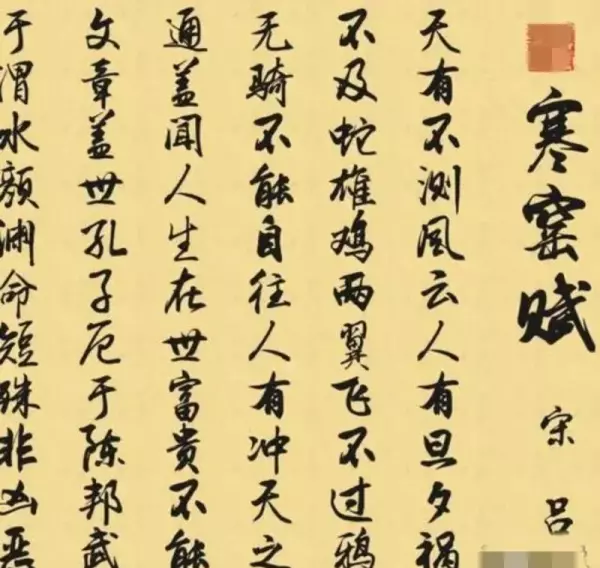 寒窑赋
宋 吕
天有不测风云人有旦夕祸
不及蛇雄鸡两翼飞不过鸦
无骑不能自往人有冲天之
通盖闻人生在世富贵不能
文章盖世孔子厄于陈邦武
于渭水颜渊命短殊非凶恶